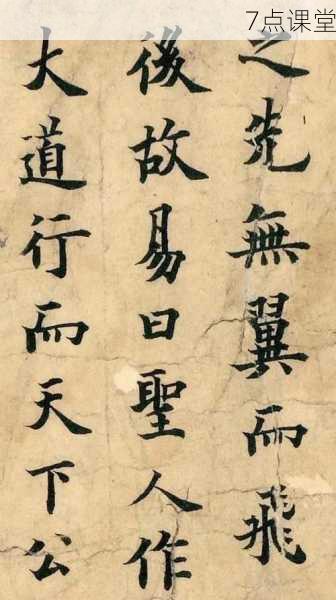 7点课堂
之先無翼而飛
後故易曰聖人作
大道行而天下公